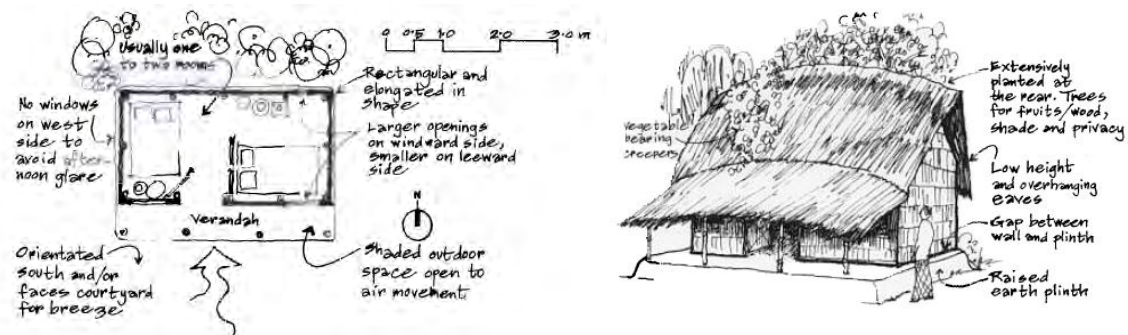 usually one
to two rooms
0 0.5 1.0 2.0 3.0 m
Rectangular and
elongated in
shape
No windows
on west
side to
avoid after-
noon glare
Larger openings
on windward side,
smaller on leeward
side
N
Verandah
Orientated
south and/or
faces courtyard
for breeze
Shaded outdoor
space open to
air movement
vegetable
bearing
creepers
Extensively
planted at
the rear. Trees
for fruits/wood,
shade and privacy
Low height
and overhanging
eaves
Gap between
wall and plinth
Raised
earth plinth